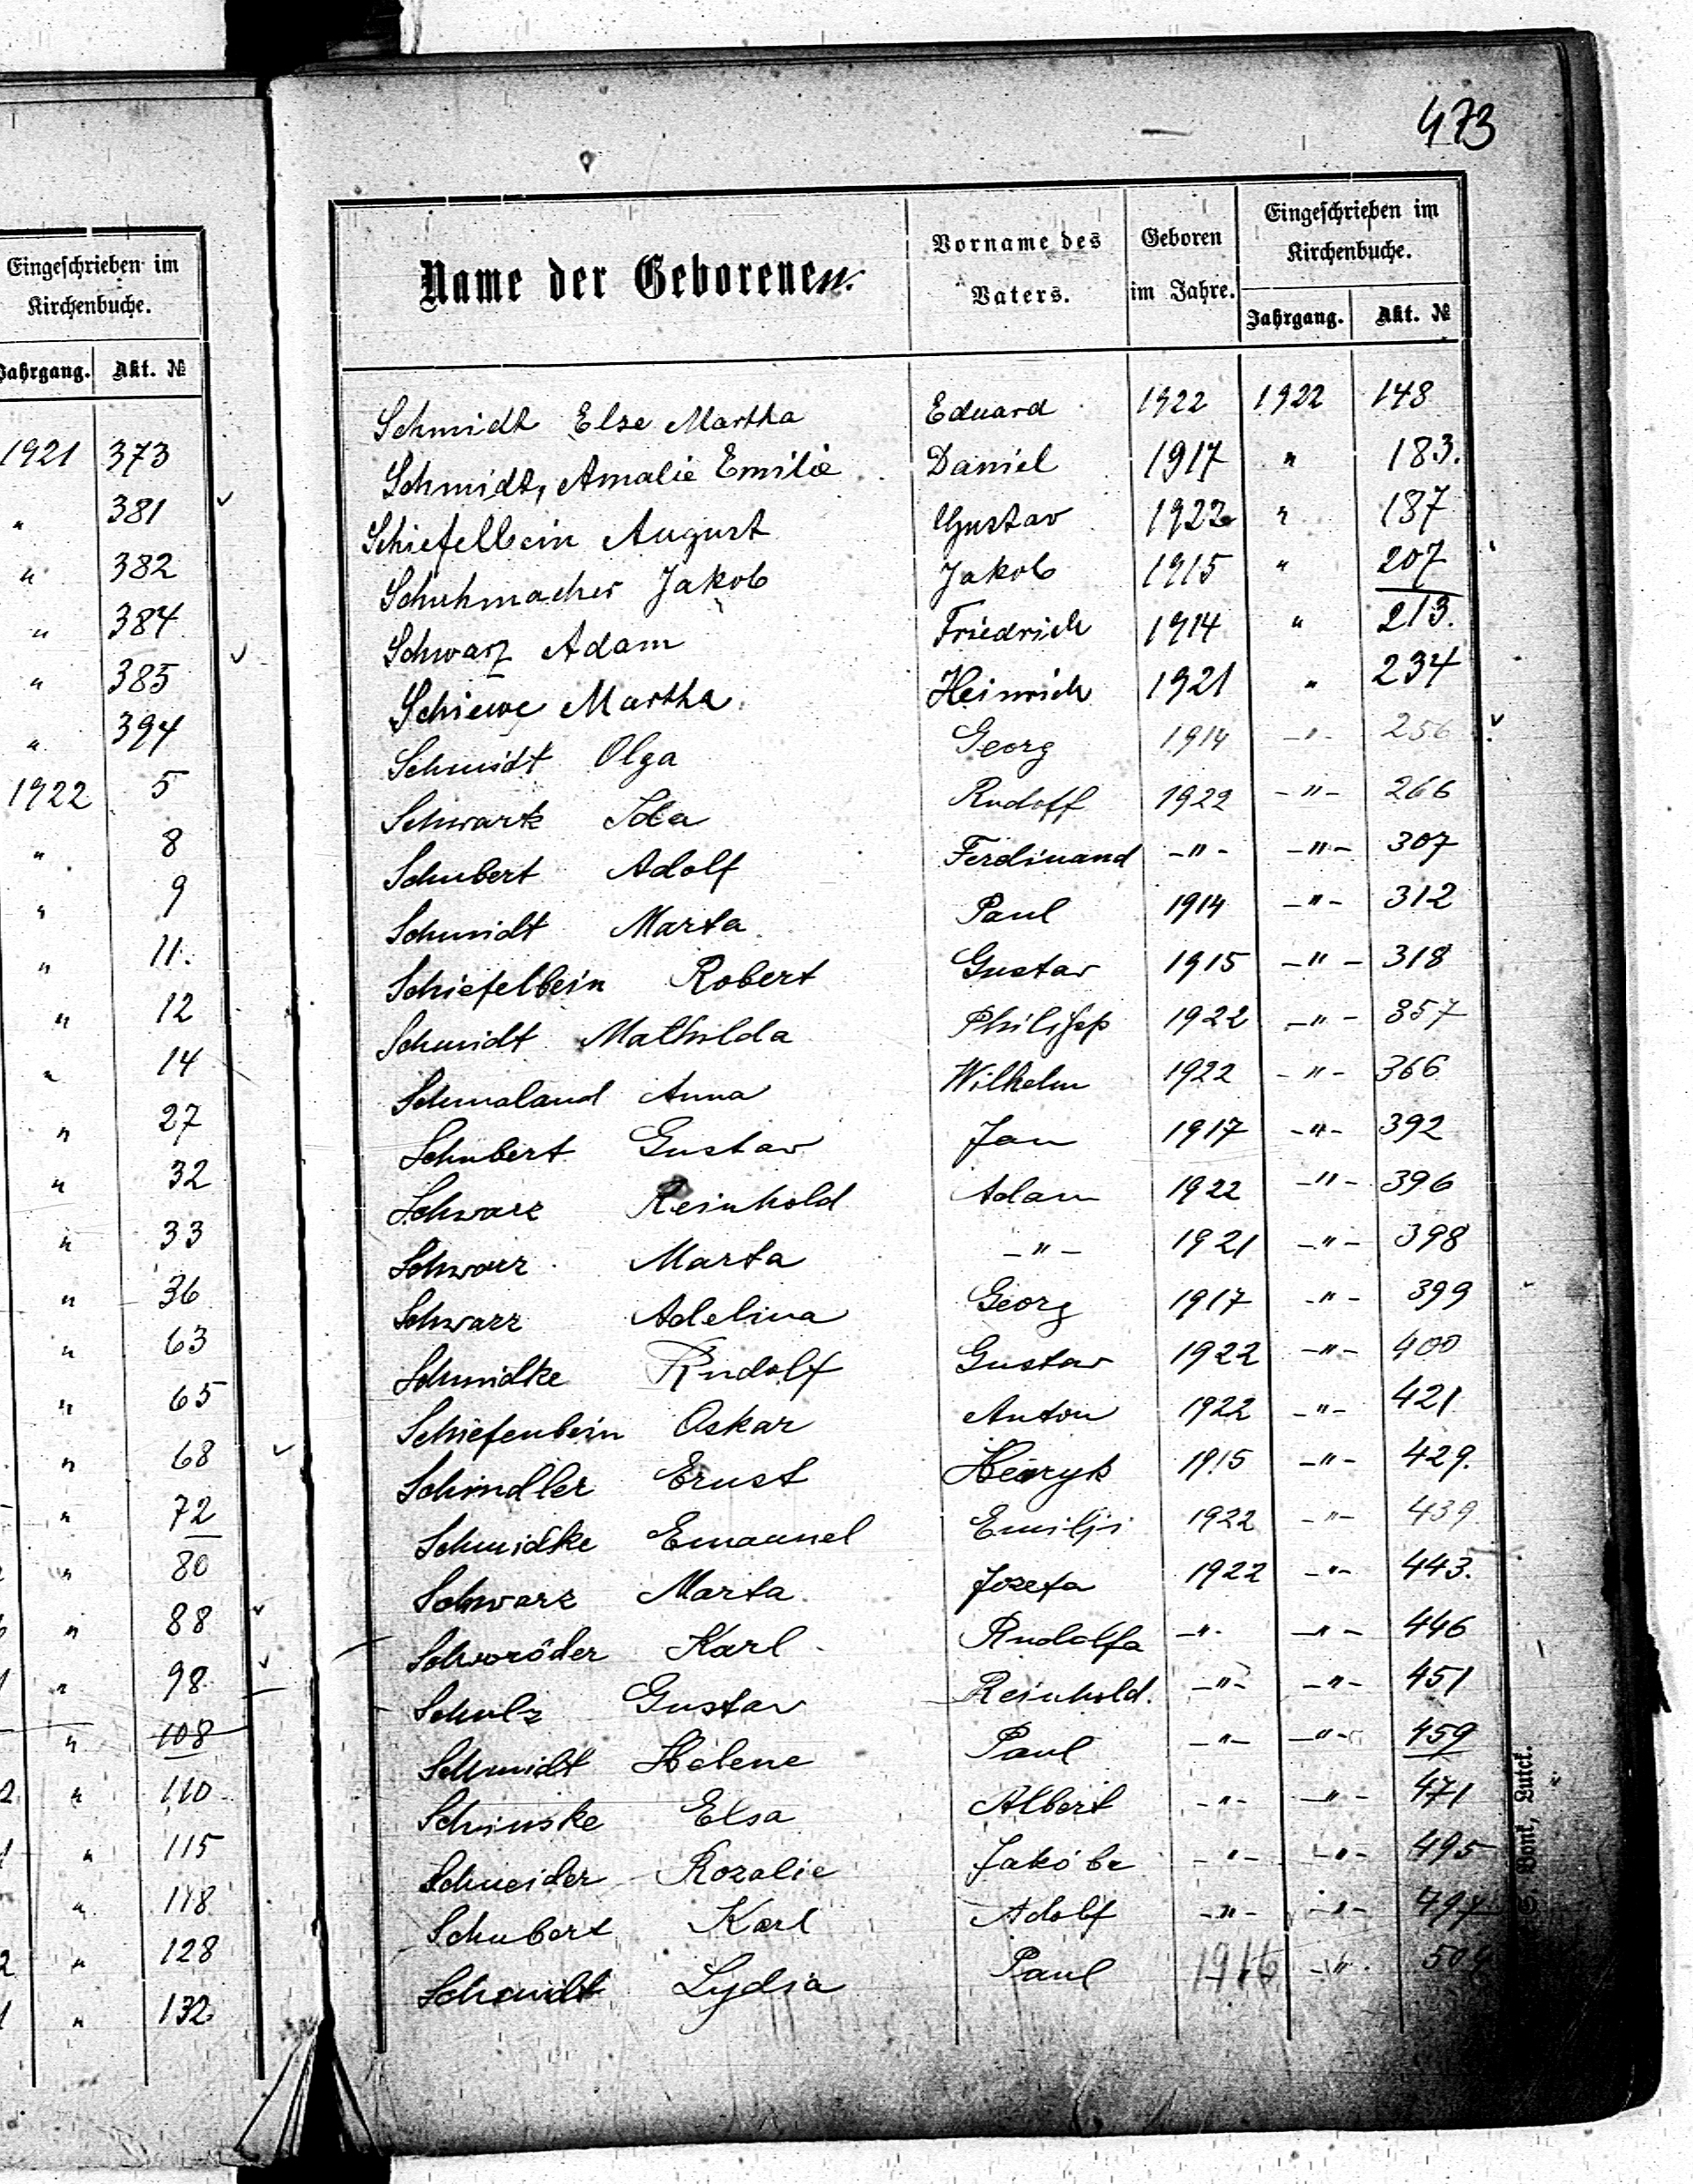 473
Eingeschrieben im
Kirchenbuche.
Jahrgang. Akt. №
1921 373
" 381
" 382
" 384
" 385
" 394
1922 5
" 8
" 9
" 11.
" 12
" 14
" 27
" 32
" 33
" 36
" 63
" 65
" 68
" 72
" 80
" 88
" 98
" 108
" 110
" 115
" 118
" 128
" 132
Name der Geborenen. Vorname des Vaters. Geboren im Jahre. Eingeschrieben im Kirchenbuche.
Jahrgang. Akt. №
Schmidt Else Martha Eduard 1922 1922 148
Schmidt, Amalie Emilie Daniel 1917 " 183.
Schiefelbein August Gustav 1922 " 187
Schuhmacher Jakob Jakob 1915 " 207
Schwarz Adam Friedrich 1914 " 213.
Schiewe Martha Heinrich 1921 " 234
Schmidt Olga Georg 1914 -"- 256
Schwartz Ida Rudolf 1922 -"- 266
Schubert Adolf Ferdinand -"- -"- 307
Schmidt Marta Paul 1914 -"- 312
Schiefelbein Robert Gustav 1915 -"- 318
Schmidt Mathilda Philipp 1922 -"- 357
Schmaland Anna Wilhelm 1922 -"- 366
Schubert Gustav Jan 1917 -"- 392
Schwarz Reinhold Adam 1922 -"- 396
Schwarz Marta -"- 1921 -"- 398
Schwarz Adelina Georg 1917 -"- 399
Schmidke Rudolf Gustav 1922 -"- 400
Schiefenbein Oskar Anton 1922 -"- 421
Schindler Ernst Henryk 1915 -"- 429.
Schmidke Emanuel Emilji 1922 -"- 439
Schwarz Marta Jozefa 1922 -"- 443.
Schwröder Karl Rudolfa -"- -"- 446
Schulz Gustav Reinhold. -"- -"- 451
Schmidt Helene Paul -"- -"- 459
Schinske Elsa Albert -"- -"- 471
Schneider Rozalie Jakóba -"- -"- 495
Schubert Karl Adolf -"- -"-
Schmidt Lydia Paul 1916 -"-